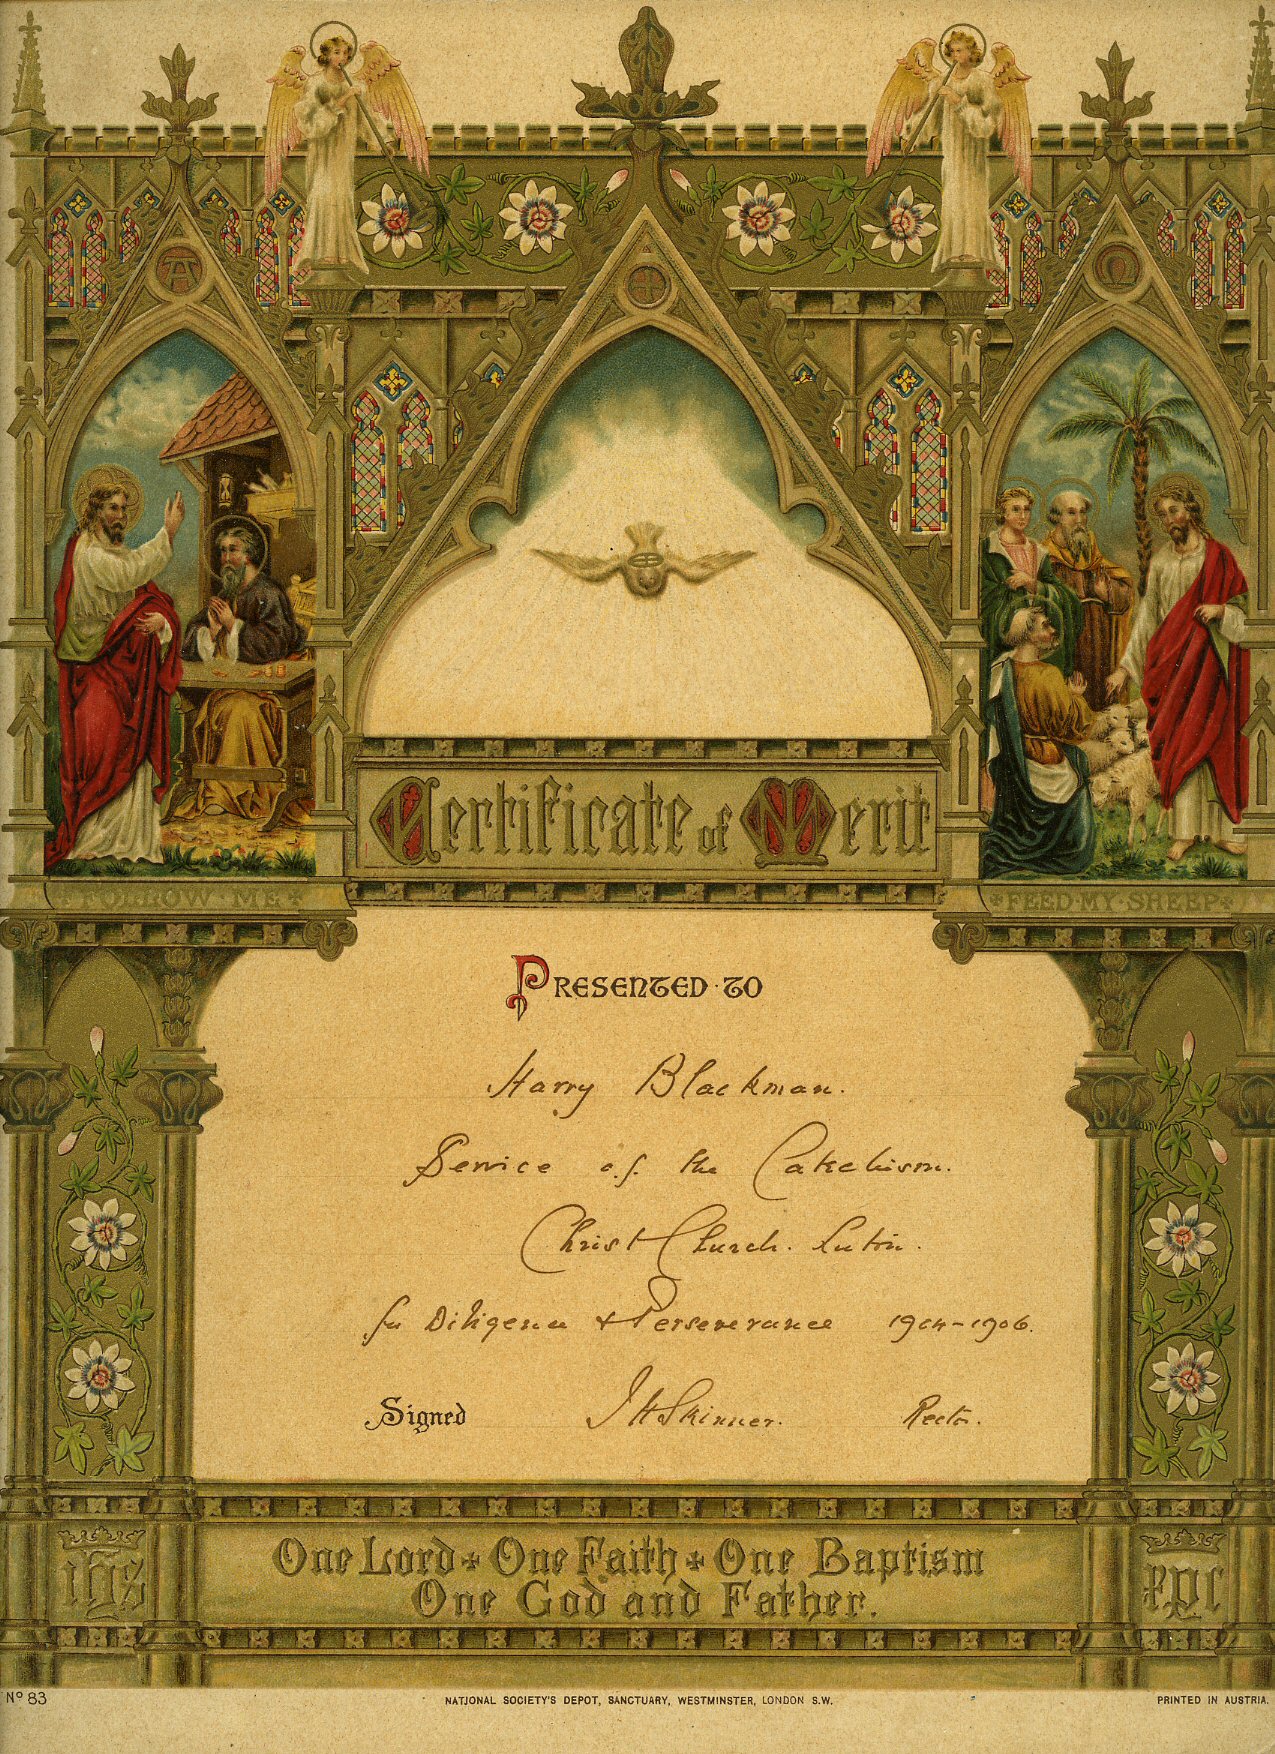 Certificate of Merit
FOLLOW · ME
FEED · MY · SHEEP
PRESENTED · TO
Harry Blackman.
Service of the Catechism.
Christ Church. Luton.
for Diligence & Perseverance 1904-1906.
Signed J H Skinner. Rector.
One Lord + One Faith + One Baptism
One God and Father.
IHS
XPC
Nº 83
NATIONAL SOCIETY'S DEPOT, SANCTUARY, WESTMINSTER, LONDON S.W.
PRINTED IN AUSTRIA.